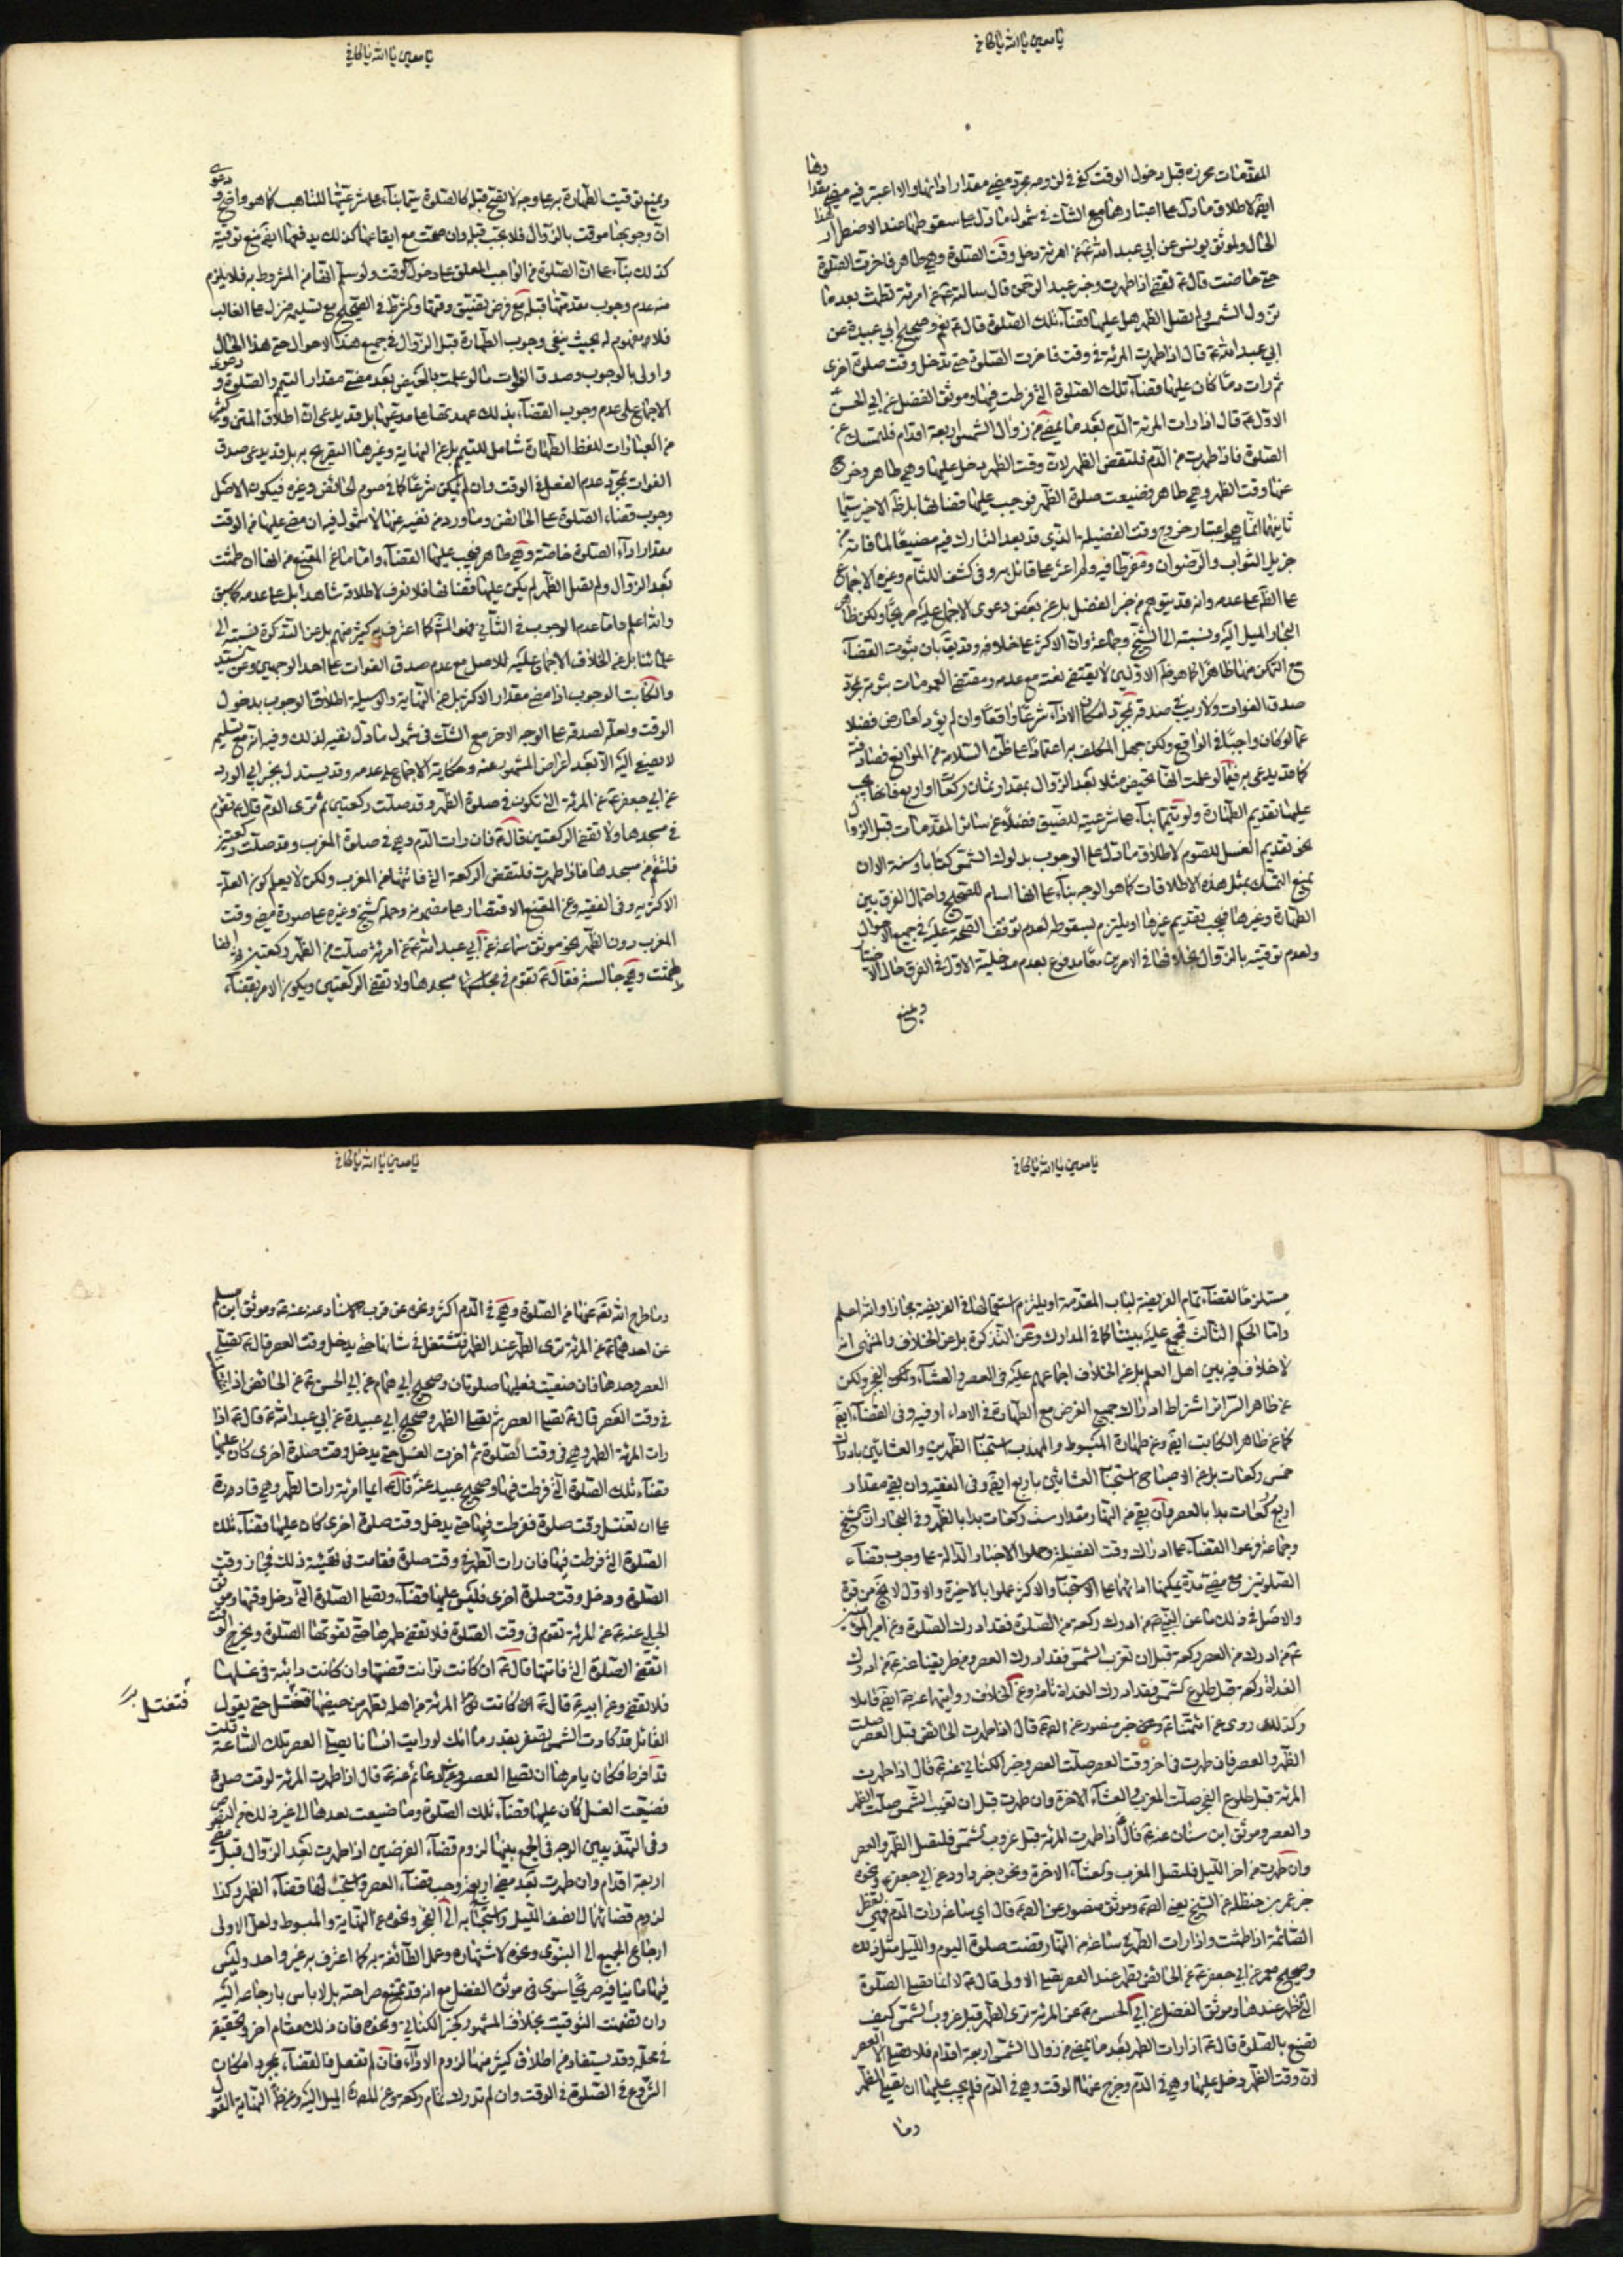 يا معين يا الله يا كافي
المقدمات محرزة قبل دخول الوقت كفى في لزومه مجرد مضي مقدار ادائها والا اعتبر فيه مضي مقدارها
ايضا لاطلاق ما دل على اعتبارها مع الشك في شمول ما دل على سقوطها عند الاضطرار لهذا
الحال ولموثق يونس عن ابي عبد الله ع عن امرئة دخل وقت الصلوة وهي طاهر فاخرت الصلوة
حتى حاضت قال ع تقضي اذا طهرت وخبر عبد الرحمن قال سالته ع عن امرئة تطمث بعد ما
تزول الشمس ولم تصل الظهر هل عليها قضاء تلك الصلوة قال ع نعم وصحيح ابي عبيدة عن
ابي عبد الله ع قال اذا طهرت المرئة في وقت فاخرت الصلوة حتى تدخل وقت صلوة اخرى
ثم رات دما كان عليها قضاء تلك الصلوة التي فرطت فيها وموثق الفضل عن ابي الحسن
الاول ع قال اذا رات المرئة الدم بعد ما يمضي من زوال الشمس اربعة اقدام فلتمسك عن
الصلوة فاذا طهرت من الدم فلتقض الظهر لان وقت الظهر دخل عليها وهي طاهر وخرج
عنها وقت الظهر وهي طاهر فضيعت صلوة الظهر فوجب عليها قضائها بل ظ الاخير سيما
ثانيهما انما هو اعتبار خروج وقت الفضيلة الذي قد يعد التارك فيه مضيعا لما فاته من
جزيل الثواب والرضوان ومفرطا فيه ولم اعثر على قائل به وفي كشف اللثام وغيره الاجماع
على الظ على عدمه وانه قد يتوهم من خبر الفضل بل عن بعض دعوى الاجماع عليه صريحا ولكن ظاهر
البحار الميل اليه ونسبته الى الشيخ وجماعة وان الاكثر على خلافه وقد يق بان ثبوت القضاء
مع التمكن منها ظاهرا كما هو ظ الاولين لا يقتضي نفيه مع عدمه ومقتضى العمومات ثبوته بمجرد
صدق الفوات ولا ريب في صدقه بمجرد امكان الاداء شرعا واقعا وان لم يؤد لعارض فضلا
عما لو كان واجبا في الواقع ولكن جهل المكلف به اعتمادا على ظن السلامة من الموانع فصادفته
كما قد يدعى به فيما لو علمت انها تحيض مثلا بعد الزوال بمقدار ثمان ركعات او اربع فانه يجب
عليها تقديم الطهارة ولو تيمما بناء على شرعيته للضيق فضلا عن سائر المقدمات قبل الزوال
نحو تقديم الغسل للصوم لاطلاق ما دل على الوجوب بدلوك الشمس كتابا وسنة الا ان
يمنع التمسك بمثل هذه الاطلاقات كما هو الوجه بناء على انها اسام للصحيح واحتمال الفرق بين
الطهارة وغيرها فيجب تقديم غيرها او يلتزم بسقوطه لعدم توقف الصحة عليه في جميع الاحوال
ولعدم توقيته بالزوال بخلافها في الامرين معا مدفوع بعدم مدخلية الاول في الفرق حال الاختيار
ويمنع
يا معين يا الله يا كافي
ويمنع توقيت الطهارة به على وجه لا يصح قبل كالصلوة سيما بناء على شرعيتها للتاهب كما هو واضح ودعوى
ان وجوبها موقت بالزوال فلا يجب قبله وان صحت مع ايقاعها كذلك يدفعها ايضا منع توقيته
كذلك بناء على ان الصلوة من الواجب المعلق على دخول الوقت ولو سلم انها من المشروط به فلا يلزم
منه عدم وجوب مقدمتها قبله مع فرض تضيق وقتها وكثرة في الصحيح مع تسليمه منزل على الغالب
فلا مفهوم له بحيث ينفي وجوب الطهارة قبل الزوال في جميع هذا الاحوال حتى هذا الحال
واولى بالوجوب وصدق الفوات ما لو علمت بالحيض بعد مضي مقدار التيمم والصلوة ودعوى
الاجماع على عدم وجوب القضاء بذلك عهدتها على مدعيها بل قد يدعى ان اطلاق المتن وكثير
من العبارات للفظ الطهارة شامل للتيمم بل عن النهاية وغيرها التصريح به بل قد يدعى صدق
الفوات بمجرد عدم الفعل في الوقت وان لم يكن شرعا كما في صوم الحائض وغيره فيكون الاصل
وجوب قضاء الصلوة على الحائض وما ورد من نفيه عنها لا شمول فيه ان مضى عليها من الوقت
مقدار اداء الصلوة خاصة وهي طاهر فيجب عليها القضاء واما ما عن المقنع من انها ان طمثت
بعد الزوال ولم تصل الظهر لم يكن عليها قضائها فلا نعرف لاطلاقه شاهدا بل على عدمه كما سبق
والله اعلم واما عدم الوجوب في الثاني فهو المش كما اعترف به كثير منهم بل عن التذكرة نسبته الى
علمائنا بل عن الخلاف الاجماع عليه للاصل مع عدم صدق الفوات على احد الوجهين وعن السيد
والكاتب الوجوب اذا مضى مقدار الاكثر بل عن النهاية والوسيلة اطلاق الوجوب بدخول
الوقت ولعله لصدقه على الوجه الاخر مع الشك في شمول ما دل نفيه لذلك وفيه انه مع تسليمه
لا يصغى اليه الا بعد اعراض المشهور عنه وحكاية الاجماع على عدمه وقد يستدل بخبر ابي الورد
عن ابي جعفر ع عن المرئة التي تكون في صلوة الظهر وقد صلت ركعتين ثم ترى الدم قال ع تقوم
في مسجدها ولا تقضي الركعتين قال ع فان رات الدم وهي في صلوة المغرب وقد صلت ركعتين
فلتقم من مسجدها فاذا طهرت فلتقض الركعة التي فاتتها من المغرب ولكن لا يعلم كون العلة
الاكثرية وفي الفقيه وعن المقنع الاقتصار على مضمونه وحمله الشيخ وغيره على صورة مضي وقت
المغرب دون الظهر نحو موثق سماعة عن ابي عبد الله ع عن امرئة صلت من الظهر ركعتين ثم انها
طمثت وهي جالسة فقال ع تقوم في مجلسها مسجدها ولا تقضي الركعتين ويكون الامر بقضاء
يا معين يا الله يا كافي
مستلزما لقضاء تمام الفريضة لباب المقدمة او يلتزم استعمالها في الفريضة مجازا والله اعلم
واما الحكم الثالث فجمع عليه بيننا كما في المدارك وعن التذكرة بل عن الخلاف والمنتهى انه
لا خلاف فيه بين اهل العلم بل عن الخلاف اجماعهم عليه في العصر والعشاء وكك الفجر ولكن
عن ظاهر السرائر اشتراط ادراك جميع الفرض مع الطهارة في الاداء او فيه وفي القضاء ايضا
كما عن ظاهر الكاتب ايضا وعن طهارة المبسوط والمهذب استحباب الظهرين والعشائين بادراك
خمس ركعات بل عن الاصباح استحباب العشائين باربع ايضا وفي الفقيه وان بقي مقدار
اربع ركعات بدا بالعصر وان بقي من النهار مقدار ست ركعات بدا بالظهر وفي البحار ان الشيخ
وجماعة فرعوا القضاء على ادراك وقت الفضيلة وحملوا الاخبار الدالة على وجوب قضاء
الصلوتين مع مضي مدة يمكنها ادائها على الاستحباب والاكثر عملوا بالاخيرة والاول لا يخ من قوة
والاصل في ذلك ما عن النبي ص من ادرك ركعة من الصلوة فقد ادرك الصلوة وعن امير المؤمنين
ع من ادرك من العصر ركعة قبل ان تغرب الشمس فقد ادرك العصر ومن طريقنا عنه ع من ادرك
الغداة ركعة قبل طلوع الشمس فقد ادرك الغداة تامة وعن الخلاف روايتها عنه ص ايضا قائلا
وكذلك روي عن ائمتنا ع وعن خبر منصور عن الص ع قال اذا طهرت الحائض قبل العصر صلت
الظهر والعصر فان طهرت في اخر وقت العصر صلت العصر وخبر الكناني عنه ع قال اذا طهرت
المرئة قبل طلوع الفجر صلت المغرب والعشاء الاخرة وان طهرت قبل ان تغيب الشمس صلت الظهر
والعصر وموثق ابن سنان عنه ع قال اذا طهرت المرئة قبل غروب الشمس فلتصل الظهر والعصر
وان طهرت من اخر الليل فلتصل المغرب والعشاء الاخرة ونحوه خبر داود عن ابي جعفر ع ونحوه
خبر عمر بن حنظلة عن الشيخ يعني الص ع وموثق منصور عن الص ع قال اي ساعة رات الدم فهي تفطر
الصائمة اذا طمثت واذا رات الطهر في ساعة من النهار قضت صلوة اليوم والليل مثل ذلك
وصحيح معمر عن ابي جعفر ع عن الحائض تطهر عند العصر تصلي الاولى قال ع لا انما تصلي الصلوة
التي تطهر عندها وموثق الفضل عن ابي الحسن ع عن المرئة ترى الطهر قبل غروب الشمس كيف
تصنع بالصلوة قال ع اذا رات الطهر بعد ما يمضي من زوال الشمس اربعة اقدام فلا تصلي الا العصر
لان وقت الظهر دخل عليها وهي في الدم وخرج عنها الوقت وهي في الدم فلم يجب عليها ان تصلي الظهر
وما
يا معين يا الله يا كافي
وما طرح الله تع عنها من الصلوة وهي في الدم اكثر ونحوه عن قرب الاسناد عنه عنه ع وموثق ابن مسلم
عن احدهما ع عن المرئة ترى الطهر عند الظهر فتشتغل في شانها حتى يدخل وقت العصر قال ع تصلي
العصر وحدها فان ضيعت فعليها صلوتان وصحيح ابي همام عن ابي الحسن ع عن الحائض اذا اغتسلت
في وقت العصر قال ع تصلي العصر ثم تصلي الظهر وصحيح ابي عبيدة عن ابي عبد الله ع قال ع اذا
رات المرئة الطهر وهي في وقت الصلوة ثم اخرت الغسل حتى يدخل وقت صلوة اخرى كان عليها
قضاء تلك الصلوة التي فرطت فيها وصحيح عبيد عنه قال ع ايما امرئة رات الطهر وهي قادرة
على ان تغتسل وقت صلوة ففرطت فيها حتى يدخل وقت صلوة اخرى كان عليها قضاء تلك
الصلوة التي فرطت فيها فان رات الطهر في وقت صلوة فقامت في تهيئة ذلك فجاز وقت
الصلوة ودخل وقت صلوة اخرى فليس عليها قضاء وتصلي الصلوة التي دخل وقتها وموثق
الحلبي عنه ع عن المرئة تقوم في وقت الصلوة فلا تقضي طهرها حتى تفوتها الصلوة ويخرج الوقت
اتقضي الصلوة التي فاتتها قال ع ان كانت توانت قضتها وان كانت دائبة في غسلها
فلا تقضي وعن ابيه ع قال ع كانت المرئة من اهله تطهر من حيضها فتغتسل حتى يقول
فتغتسل
القائل قد كادت الشمس تصفر بقدر ما انك لو رايت انسانا يصلي العصر تلك الساعة قلت
قد افرط فكان يامرها ان تصلي العصر وخبر دعائم عنه ع قال اذا طهرت المرئة لوقت صلوة
فضيعت الغسل كان عليها قضاء تلك الصلوة وما ضيعت بعدها الى غير ذلك من النصوص
وفي التهذيبين الوجه في الجمع بينها لزوم قضاء الفرضين اذا طهرت بعد الزوال قبل مضي
اربعة اقدام وان طهرت بعد مضي اربعة وجب قضاء العصر واستحب لها قضاء الظهر وكذا
لزوم قضائها الى نصف الليل واستحبابه الى الفجر ونحوه عن النهاية والمبسوط ولعل الاولى
ارجاع الجميع الى النبوي ونحوه لاشتهاره وعمل الطائفة به كما اعترف به غير واحد وليس
فيها ما ينافيه صريحا سوى في موثق الفضل مع انه قد تمنع صراحته بل لا باس بارجاعه اليه
وان تضمنت التوقيت بخلاف المشهور كخبر الكناني ونحوه فان ذلك مقام اخر وتحقيقه
في محله وقد يستفاد من اطلاق كثير منها لزوم الاداء فان لم تفعل فالقضاء بمجرد امكان
الشروع في الصلوة في الوقت وان لم تدرك تمام ركعة وعن المص الميل اليه وعن ظ النهاية القول